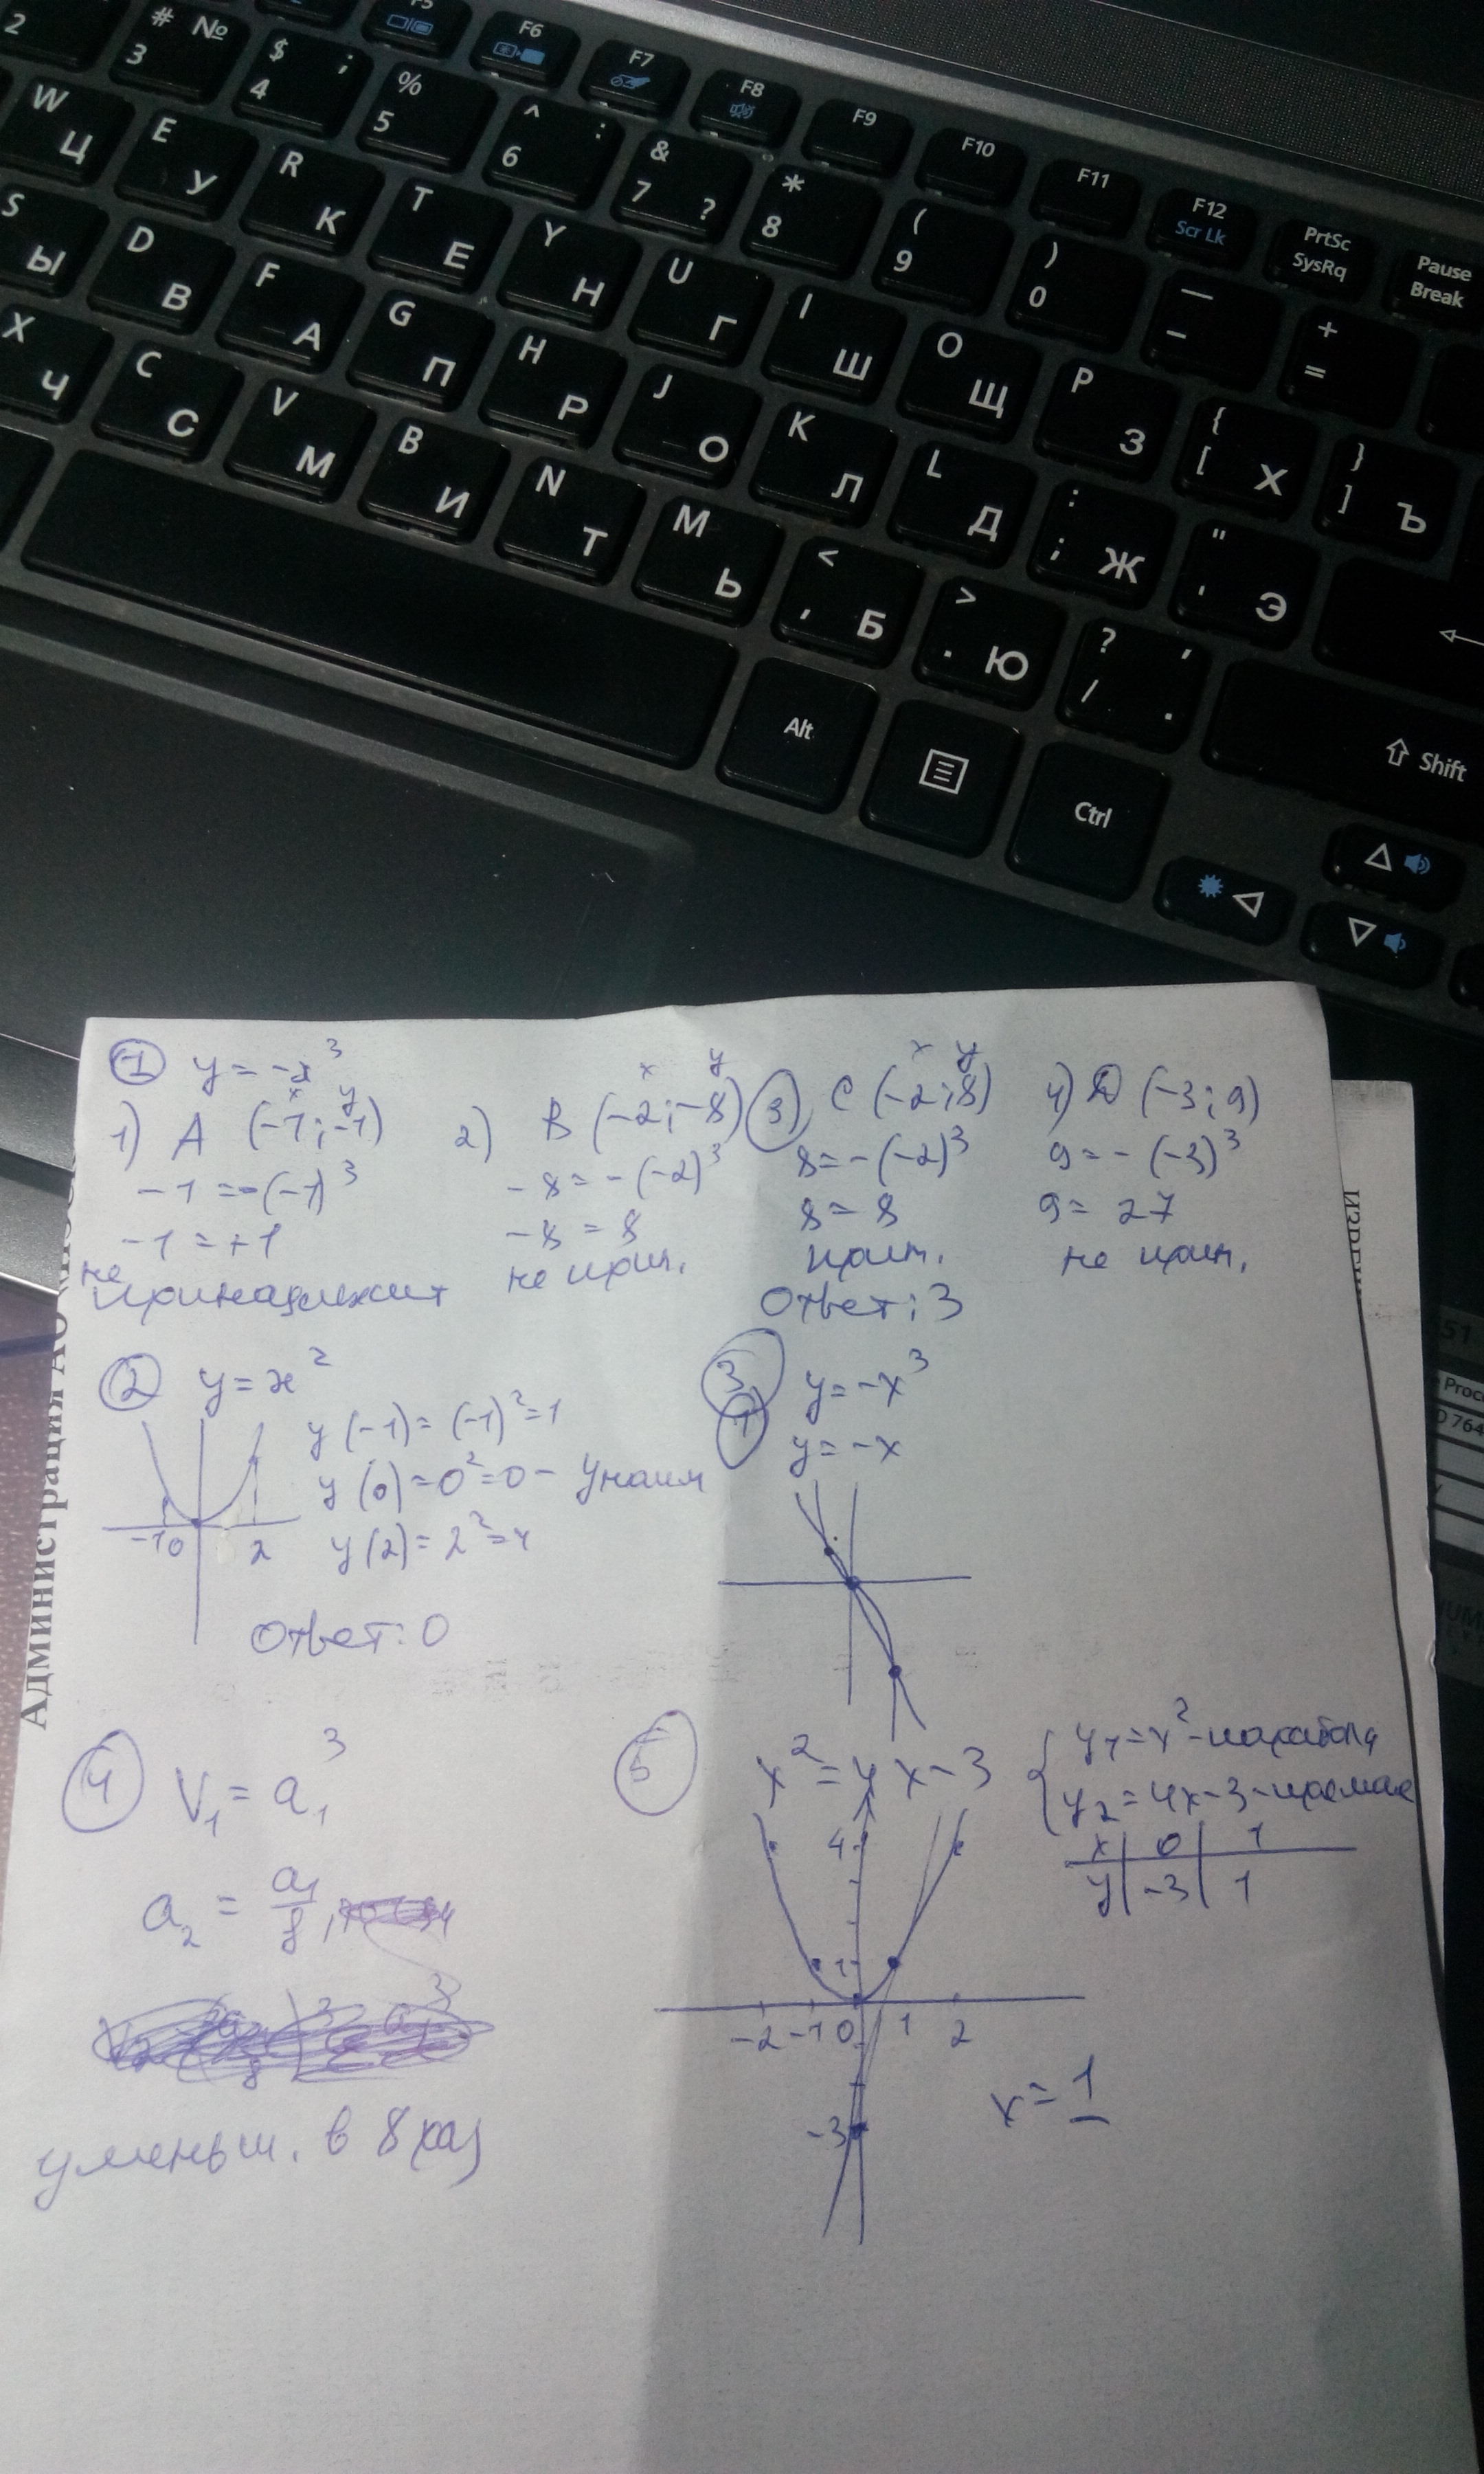 2
# № 3
$ ; 4
% 5
^ : 6
& 7 ?
* 8
( 9
) 0
— -
+ =
F5 F6 F7 F8 F9 F10 F11 F12 Scr Lk PrtSc SysRq Pause Break
W Ц E У R К T Е Y Н U Г I Ш O Щ P З { [ Х } ] Ъ
S Ы D В F А G П H Р J О K Л L Д : ; Ж " ' Э
X Ч C С V М B И N Т M Ь < , Б > . Ю ? / , .
Alt Ctrl ⇧ Shift
① y = -x³
1) A (-1; -1)
x y
-1 = -(-1)³
-1 = +1
не принадлежит
2) B (-2; -8)
x y
-8 = -(-2)³
-8 = 8
не прин.
③ C (-2; 8)
x y
8 = -(-2)³
8 = 8
прин.
Ответ: 3
4) D (-3; 9)
9 = -(-3)³
9 = 27
не прин.
② y = x²
y(-1) = (-1)² = 1
y(0) = 0² = 0 - y наим
y(2) = 2² = 4
-1 0 2
Ответ: 0
③ y = -x³
① y = -x
④ V₁ = a₁³
a₂ = a₁/8,
уменьш. в 8 раз
⑤ x² = 4x - 3
{ y₁ = x² - парабола
y₂ = 4x - 3 - прямая
x | 0 | 1
y | -3 | 1
4
1
-2 -1 0 1 2
-3
x = 1
Администрация АО